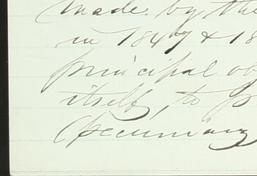 made by the
in 1847 & 18
principal ob
itself, to p
pecuniary